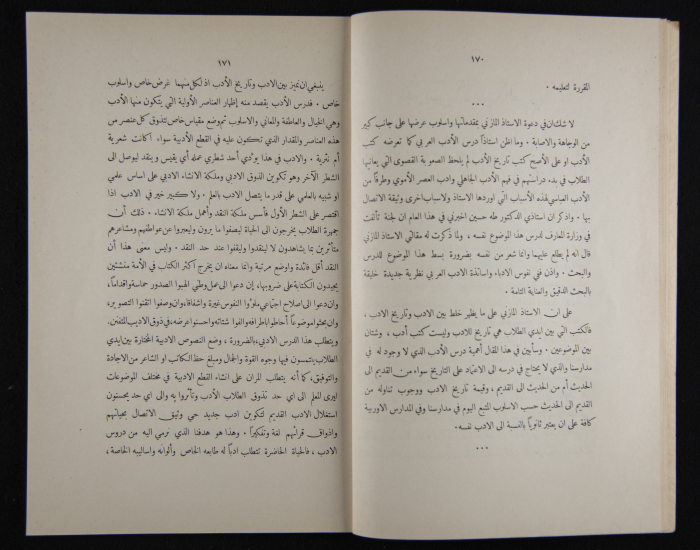 ١٧٠
المقررة لتعليمه .
...
لا شك ان في دعوة الاستاذ المازني بمقدماتها واسلوب عرضها على جانب كبير
من الوجاهة والاصابة . وما اظن استاذاً درس الأدب العربي كما تعرضه كتب
الأدب او على الأصح كتب تاريخ الأدب لم يلحظ الصعوبة القصوى التي يعانيها
الطلاب في بدء دراستهم في فهم الأدب الجاهلي وادب العصر الأموي وطرفاً من
الأدب العباسي لهذه الأسباب التي اوردها الاستاذ ولاسباب اخرى وثيقة الاتصال
بها . واذكر ان استاذي الدكتور طه حسين اخبرني في هذا العام ان لجنة تألفت
في وزارة المعارف لدرس هذا الموضوع نفسه ، ولما ذكرت له مقالتي الاستاذ المازني
قال انه لم يطلع عليهما وانما شعر من نفسه بضرورة بسط هذا الموضوع للدرس
والبحث . واذن ففي نفوس الادباء واساتذة الادب العربي نظرية جديدة خليقة
بالبحث الدقيق والعناية التامة .
على ان الاستاذ المازني على ما يظهر خلط بين الادب وتاريخ الادب ،
فالكتب التي بين ايدي الطلاب هي تاريخ للادب وليست كتب أدب ، وشتان
بين الموضوعين . وسأبين في هذا المقال أهمية درس الأدب الذي لا وجود له في
مدارسنا والذي لا يحتاج في درسه الى الاعتماد على التاريخ سواء من القديم الى
الحديث أم من الحديث الى القديم ، وقيمة تاريخ الادب ووجوب تناوله من
القديم الى الحديث حسب الاسلوب المتبع اليوم في مدارسنا وفي المدارس الاوربية
كافة على ان يعتبر ثانوياً بالنسبة الى الادب نفسه .
...
١٧١
ينبغي ان نميز بين الادب وتاريخ الأدب اذ لكل منهما غرض خاص واسلوب
خاص . فدرس الأدب يقصد منه إظهار العناصر الأولية التي يتكون منها الأدب
وهي الخيال والعاطفة والمعاني والاسلوب ثم وضع مقياس خاص لتذوق كل عنصر من
هذه العناصر والمقدار الذي تكون عليه في القطع الأدبية سواء أكانت شعرية
أم نثرية . والادب في هذا يؤدي أحد شطري عمله أي يقيس وينقد ليوصل الى
الشطر الآخر وهو تكوين الذوق الادبي وملكة الانشاء الادبي على اساس علمي
او شبيه بالعلمي على قدر ما يتصل الادب بالعلم . ولا كبير خير في الادب اذا
اقتصر على الشطر الأول فأسس ملكة النقد وأهمل ملكة الانشاء . ذلك أن
جمهرة الطلاب يخرجون الى الحياة ليصفوا ما يرون وليعبروا عن عواطفهم ومشاعرهم
متأثرين بما يشاهدون لا لينقدوا وليقفوا عند حد النقد . وليس معنى هذا أن
النقد أقل فائدة واوضع مرتبة وانما معناه ان يخرج اكثر الكتاب في الأمة منشئين
يجيدون الكتابة على ضروبها ، إن دعوا الى عمل وطني الهبوا الصدور حماسة واقداماً ،
وان دعوا الى اصلاح اجتماعي ملؤوا النفوس غيرة واشفاقاً ، وان وصفوا اتقنوا التصوير ،
وان بحثوا موضوعاً أحاطوا باطرافه والفوا شتاته واحسنوا عرضه ، في ذوق الاديب المتفنن .
ويتطلب هذا الدرس الادبي ، بالضرورة ، وضع النصوص الادبية المختارة بين ايدي
الطلاب يلتمسون فيها وجوه القوة والجمال ومبلغ حظ الكاتب او الشاعر من الاجادة
والتوفيق ، كما أنه يتطلب المران على انشاء القطع الادبية في مختلف الموضوعات
ليرى المعلم الى اي حد تذوق الطلاب الأدب وتأثروا به والى اي حد يحسنون
استغلال الادب القديم لتكوين ادب جديد حي وثيق الاتصال بحياتهم
واذواق قرائهم لغة وتفكيراً . وهذا هو هدفنا الذي نرمي اليه من دروس
الادب ، فالحياة الحاضرة تتطلب ادباً له طابعه الخاص وألوانه واساليبه الخاصة ،